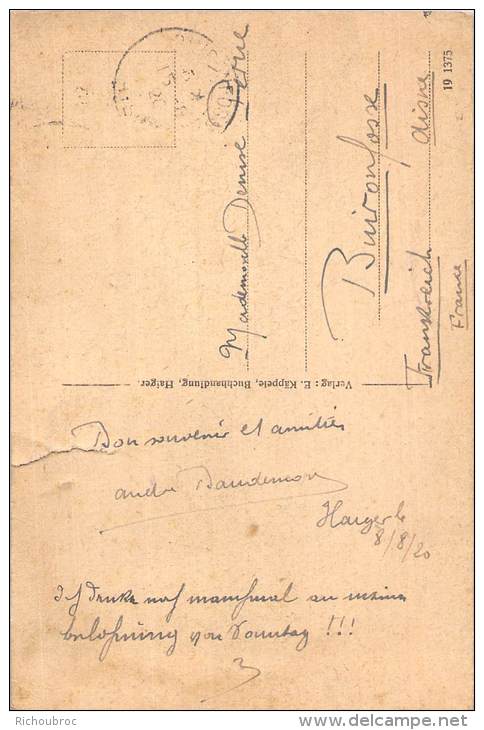 Mademoiselle Denise
Buironfosse
Aisne
Frankreich
France
19 1375
Verlag: E. Käppele, Buchhandlung, Haiger.
Bon souvenir et amitiés
andré
Haiger le
8/8/20
Ich denke noch manchmal an meine
belohnung von Sonntag !!!
Richoubroc
delcampe.net